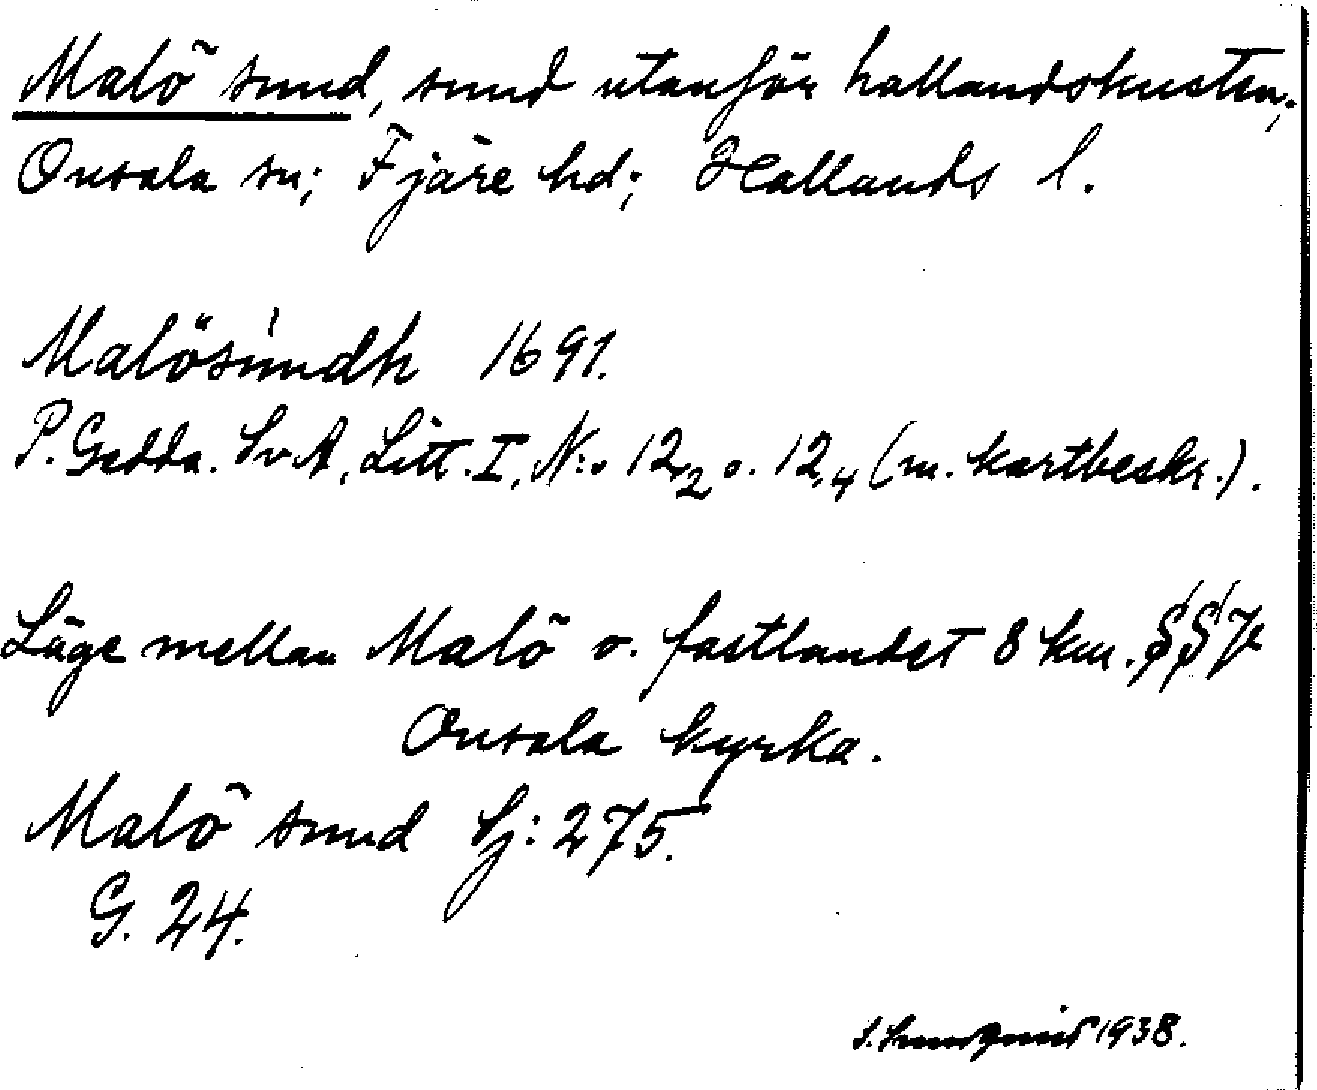 Malö sund, sund utanför hallandskusten,
Onsala sn; Fjäre hd; Hallands l.
Malösúndh 1691.
P. Gedda. Sv. A, Litt. I, N:o 12,2 o. 12,4 (m. kartbeskr.).
Läge mellan Malö o. fastlandet 8 km. SSV
Onsala kyrka.
Malö sund Sj: 275.
G. 24.
S. 1938.